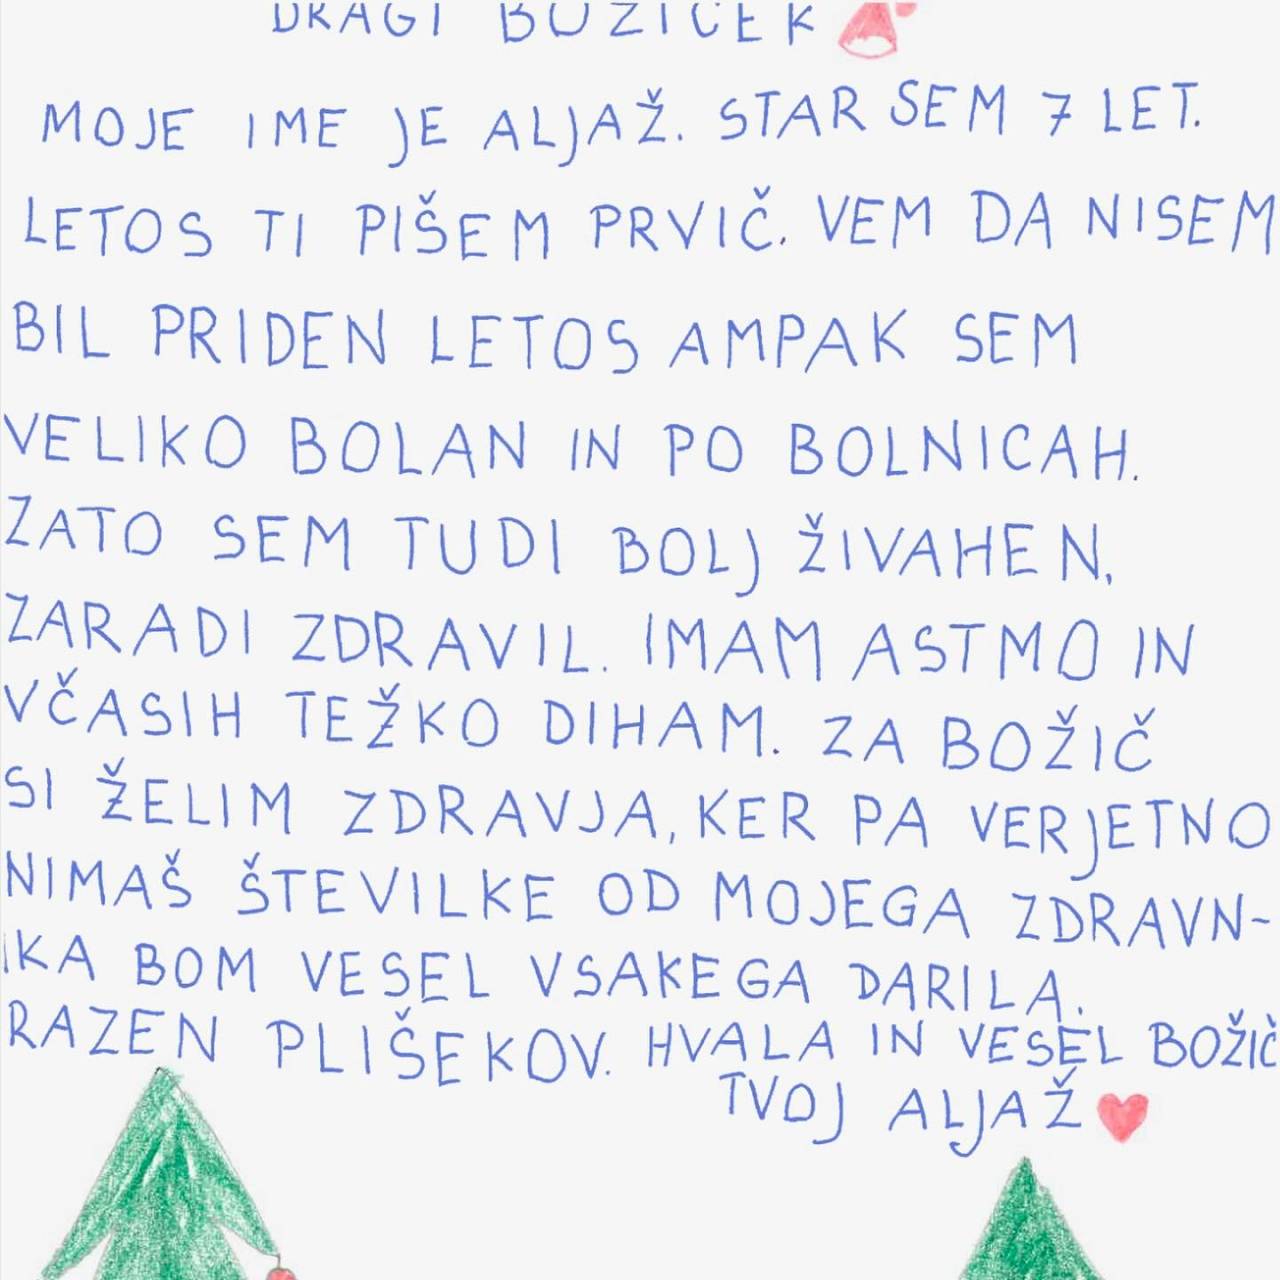 DRAGI BOŽIČEK
MOJE IME JE ALJAŽ. STAR SEM 7 LET.
LETOS TI PIŠEM PRVIČ. VEM DA NISEM
BIL PRIDEN LETOS AMPAK SEM
VELIKO BOLAN IN PO BOLNICAH.
ZATO SEM TUDI BOLJ ŽIVAHEN,
ZARADI ZDRAVIL. IMAM ASTMO IN
VČASIH TEŽKO DIHAM. ZA BOŽIČ
SI ŽELIM ZDRAVJA, KER PA VERJETNO
NIMAŠ ŠTEVILKE OD MOJEGA ZDRAVN-
IKA BOM VESEL VSAKEGA DARILA.
RAZEN PLIŠEKOV. HVALA IN VESEL BOŽIČ
TVOJ ALJAŽ